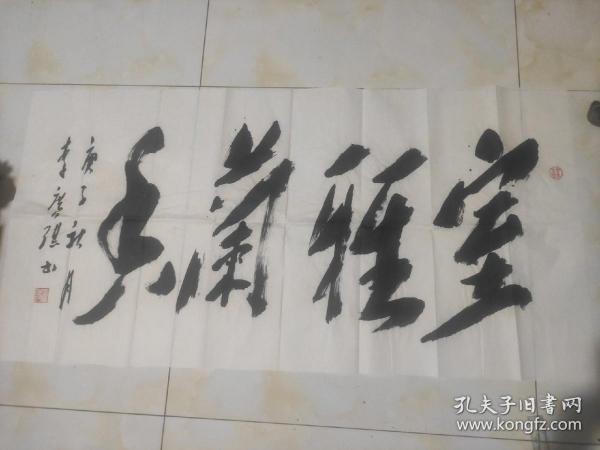 室雅蘭香
庚子秋月
李唐强书
孔夫子旧书网
www.kongfz.com